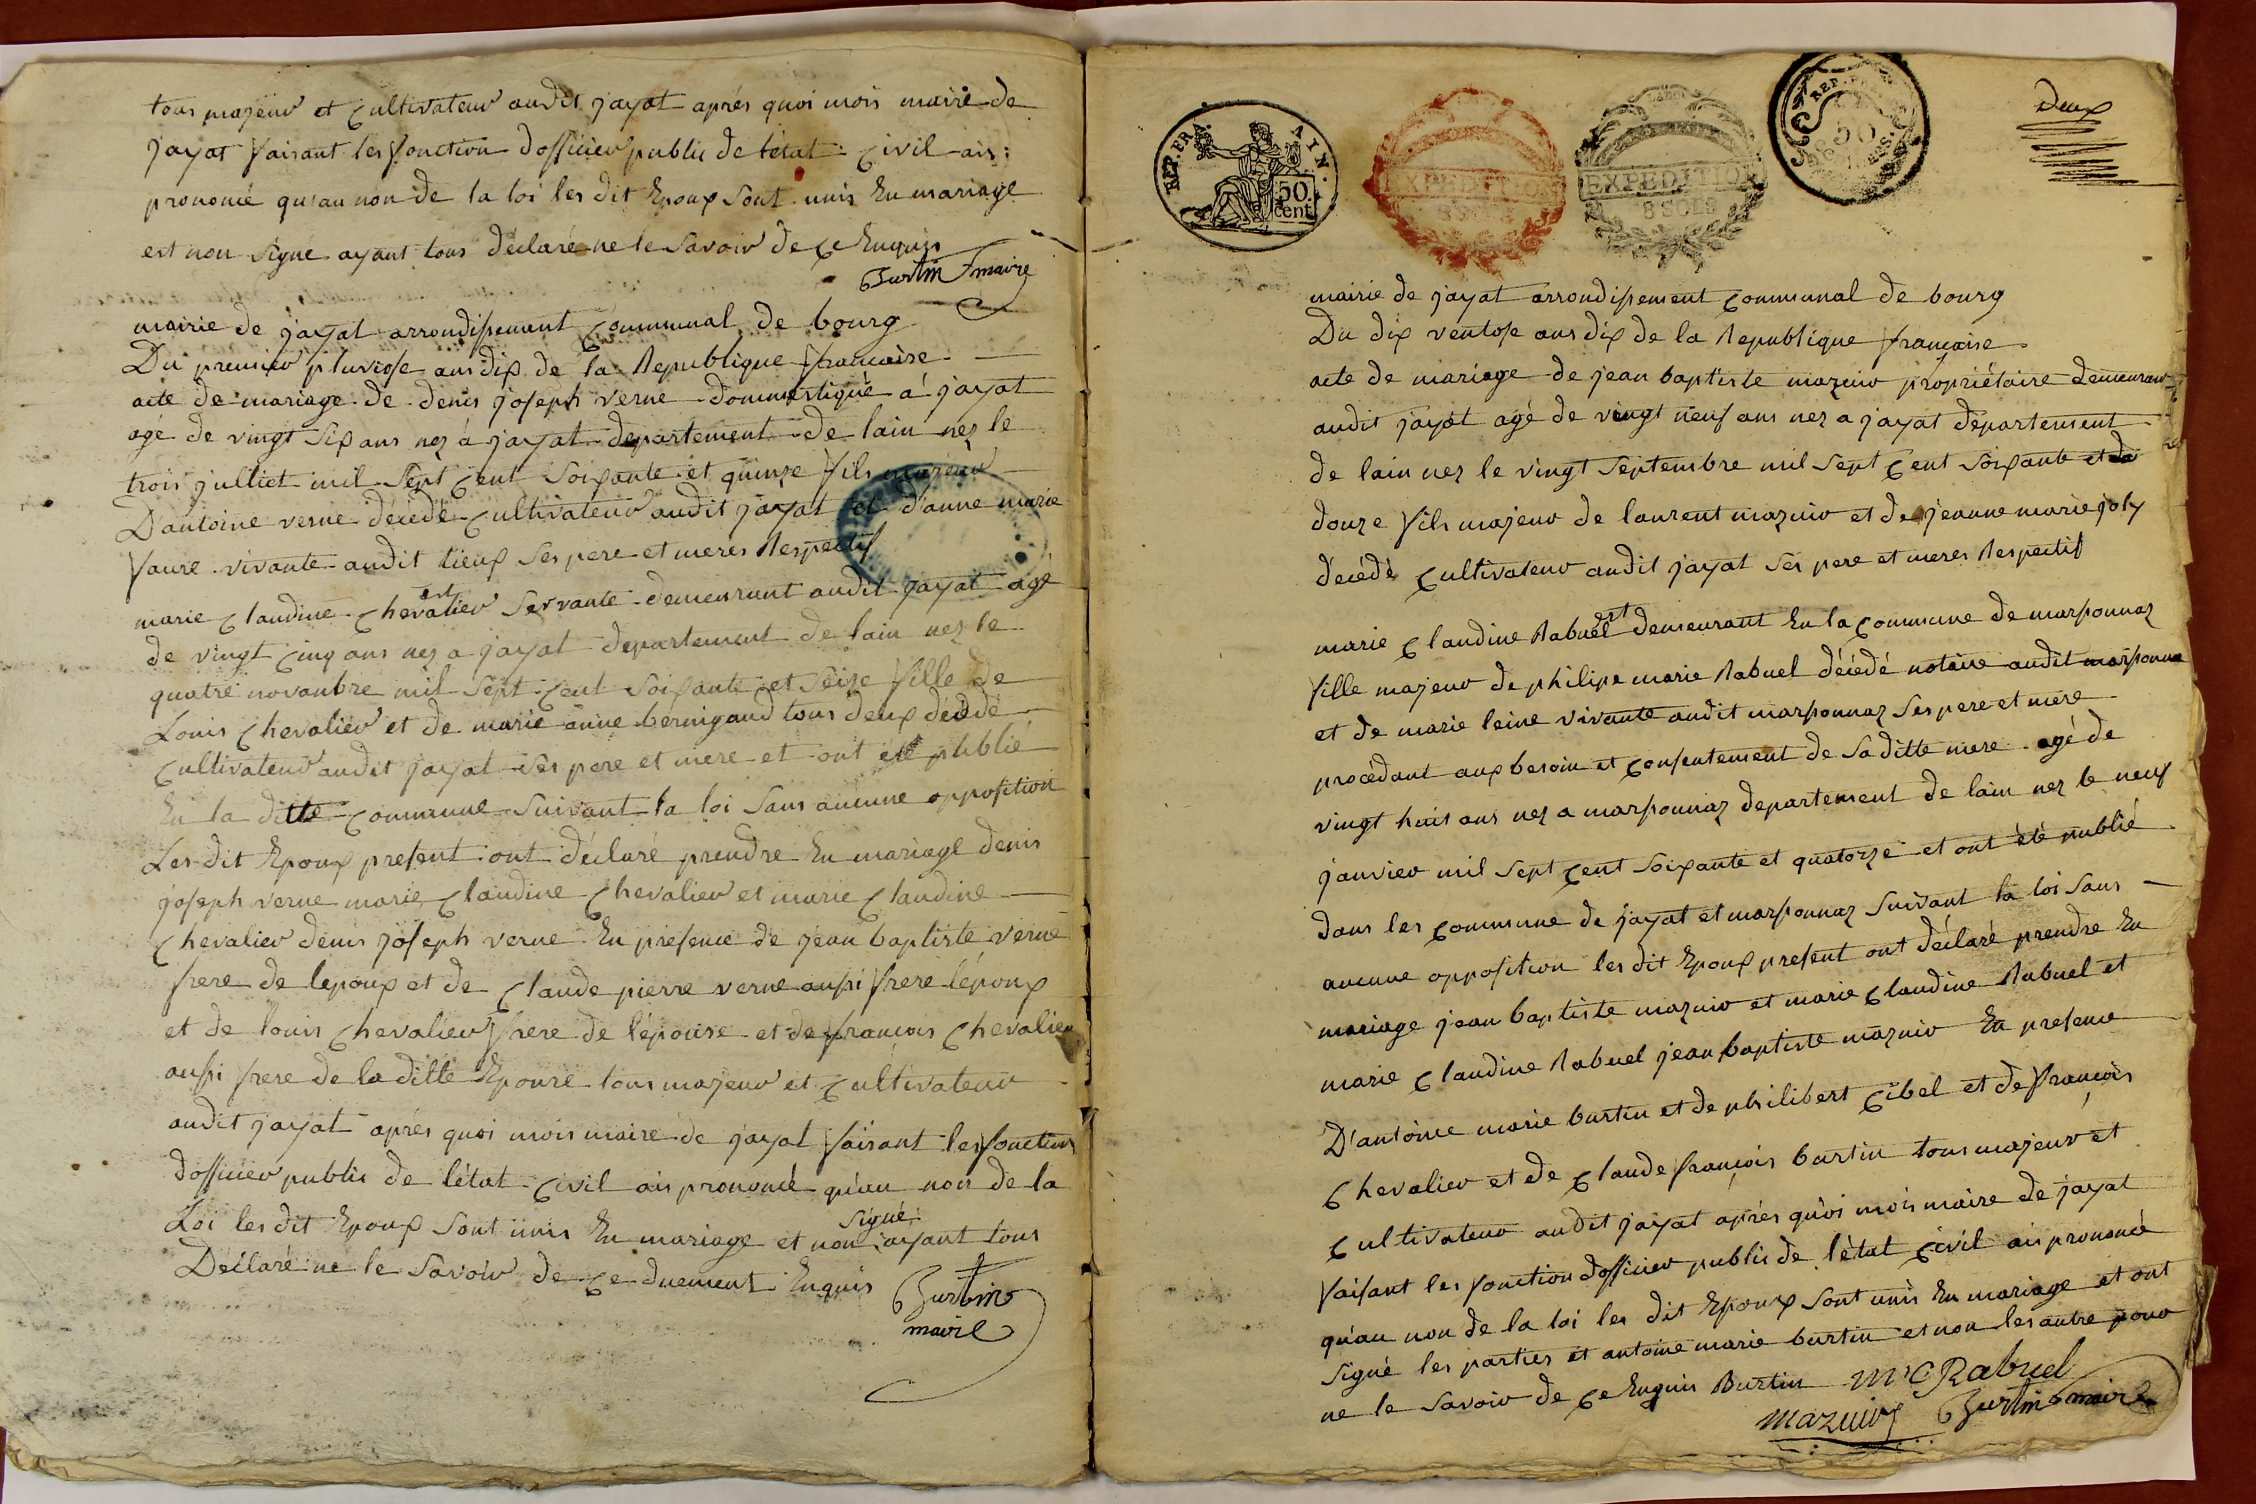 tous majeur et cultivateur audit jayat aprés quoi mois maire de
jayat faisant les fonction dofficier public de létat civil ais
prononcé quau non de la loi les dit Epoux sont unis En mariage
est non signe ayant tous déclaré ne le savoir de ce Enquis
Burtin maire
mairie de jayat arrondissement communal de bourg
Du premier pluviose ans dix de la Republique francaise
acte de mariage de denis joseph verne dommestique á jayat
agé de vingt six ans nez á jayat departement de lain nez le
trois julliet mil sept cent soixante et quinze fils majeur
Dantoine verne décédé cultivateur audit jayat et d'anne marie
faure vivante audit lieux ses pere et meres Respectif
est
marie claudine chevalier servante demeurant audit jayat agé
de vingt cinq ans nez a jayat departement de lain nez le
quatre novanbre mil sept cent soixante et seise fille de
Louis chevalier et de marie anne bernigaud tous deux décédé
cultivateur audit jayat ses pere et mere et ont été publié
En la ditte commune suivant la loi sans aucune opposition
Les dit Epoux present ont déclaré prendre En mariage denis
joseph verne marie claudine chevalier et marie claudine
chevalier denis joseph verne En presence de jean baptiste verne
frere de lepoux et de claude pierre verne aussi frere lépoux
et de louis chevalier frere de lépouse et de francois chevalier
aussi frere de la ditte Epouse tous majeur et cultivateur
audit jayat aprés quoi mois maire de jayat faisant les fonction
dofficier public de létat civil ais prononcé quau non de la
Loi les dit Epoux sont unis En mariage et non ayant tous
signé
Déclaré ne le savoir de ce duement Enquis
Burtin
maire
REP. FRA. AIN.
50 cent
EXPEDITION
8 SOLS
EXPEDITION
8 SOLS
REP.
50
deux
mairie de jayat arrondissement communal de bourg
Du dix ventose ans dix de la Republique francaise
acte de mariage de jean baptiste mazuir propriétaire demeurant
audit jayat agé de vingt neuf ans nez a jayat departement
de lain nez le vingt septembre mil sept cent soixante et
douze fils majeur de laurent mazuir et de jeanne marie joly
décédé cultivateur audit jayat ses pere et meres Respectif
est
marie claudine Rabuel demeurant En la commune de marsonnaz
fille majeur de philipe marie Rabuel décédé notaire audit marsonna
et de marie leine vivante audit marsonnaz ses pere et mere
procédant aux besoin et consentement de sa ditte mere agé de
vingt huit ans nez a marsonnaz departement de lain nez le neuf
janvier mil sept cent soixante et quatorze et ont été publié
dans les commune de jayat et marsonnaz suivant la loi sans
aucune opposition les dit Epoux present ont déclaré prendre En
mariage jean baptiste mazuir et marie claudine Rabuel et
marie claudine Rabuel jean baptiste mazuir En presence
D'antoine marie burtin et de philibert cibel et de françois
chevalier et de claude françois burtin tous majeur et
cultivateur audit jayat aprés quoi mois maire de jayat
faisant les fonction dofficier public de létat civil ais prononcé
quau non de la loi les dit Epoux sont unis En mariage et ont
signé les parties et antoine marie burtin et non les autre pour
ne le savoir de ce Enquis Burtin m C Rabuel
mazuir Burtin maire